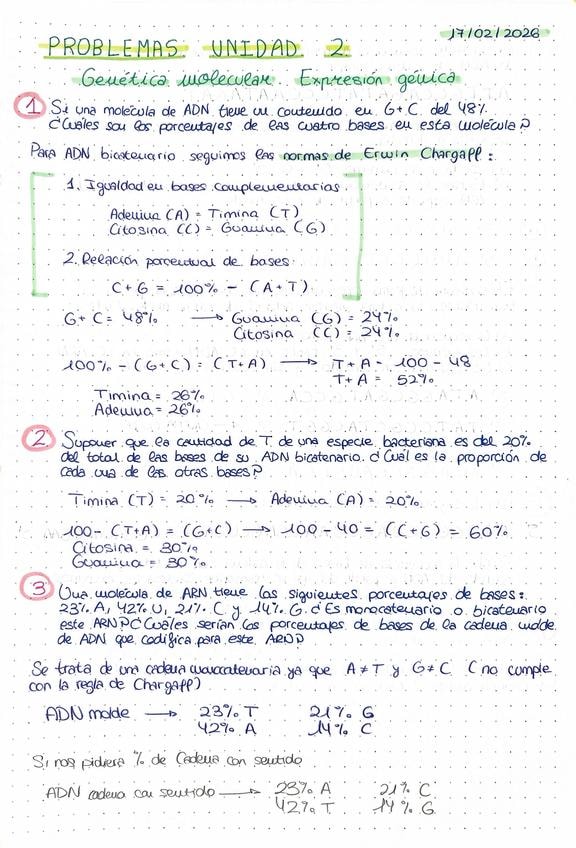 17/02/2026
PROBLEMAS UNIDAD 2
Genética molecular. Expresión génica
1 Si una molécula de ADN tiene un contenido en G+C del 48%
¿Cuáles son los porcentajes de las cuatro bases en esta molécula?
Para ADN bicatenario seguimos las normas de Erwin Chargaff:
1. Igualdad en bases complementarias
Adenina (A) = Timina (T)
Citosina (C) = Guanina (G)
2. Relación porcentual de bases:
C+G = 100% - (A+T)
G+C = 48% → Guanina (G) = 24%
Citosina (C) = 24%
100% - (G+C) = (T+A) → T+A = 100 - 48
T+A = 52%
Timina = 26%
Adenina = 26%
2 Suponer que la cantidad de T de una especie bacteriana es del 20%
del total de las bases de su ADN bicatenario. ¿Cuál es la proporción de
cada una de las otras bases?
Timina (T) = 20% → Adenina (A) = 20%
100 - (T+A) = (G+C) → 100 - 40 = (C+G) = 60%
Citosina = 30%
Guanina = 30%
3 Una molécula de ARN tiene los siguientes porcentajes de bases:
23% A, 42% U, 21% C y 14% G. ¿Es monocatenario o bicatenario
este ARN? ¿Cuáles serían los porcentajes de bases de la cadena molde
de ADN que codifica para este ARN?
Se trata de una cadena monocatenaria ya que A≠T y G≠C (no cumple
con la regla de Chargaff)
ADN molde → 23% T 21% G
42% A 14% C
Si nos pidiera % de Cadena con sentido
ADN cadena con sentido → 23% A 21% C
42% T 14% G